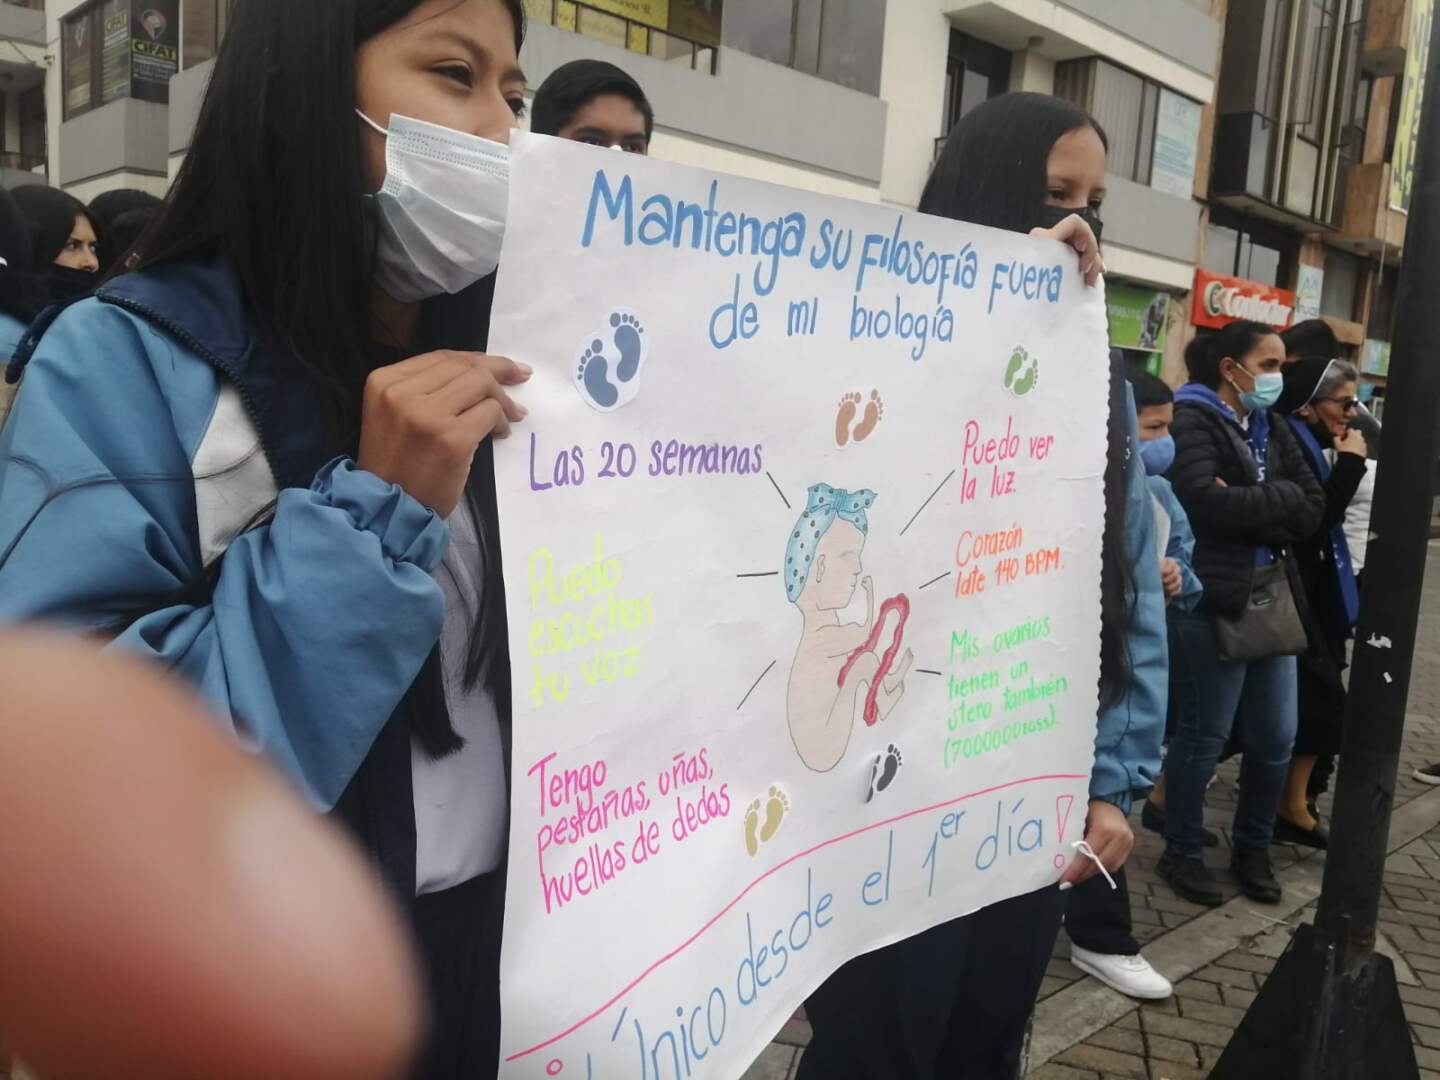 CIFAT
CIFAT
Mantenga su filosofía fuera
de mi biología
Las 20 semanas
Puedo
escuchar
tu voz
Tengo
pestañas, uñas,
huellas de dedos
Puedo ver
la luz.
Corazón
late 140 BPM.
Mis ovarios
tienen un
útero también
¡Único desde el 1er día!